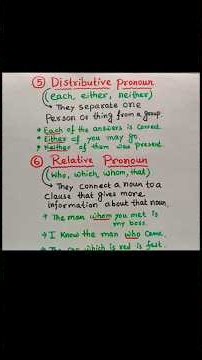 ⑤ Distributive pronoun
(each, either, neither)
↳ They separate one
Person or thing from a group.
→ Each of the answers is correct.
→ Either of you may go.
→ Neither of them was present.
⑥ Relative Pronoun
(who, which, whom, that)
↳ They connect a noun to a
clause that gives more
information about that noun.
→ The man whom you met is
my boss.
→ I know the man who came.
→ The car which is red is fast.